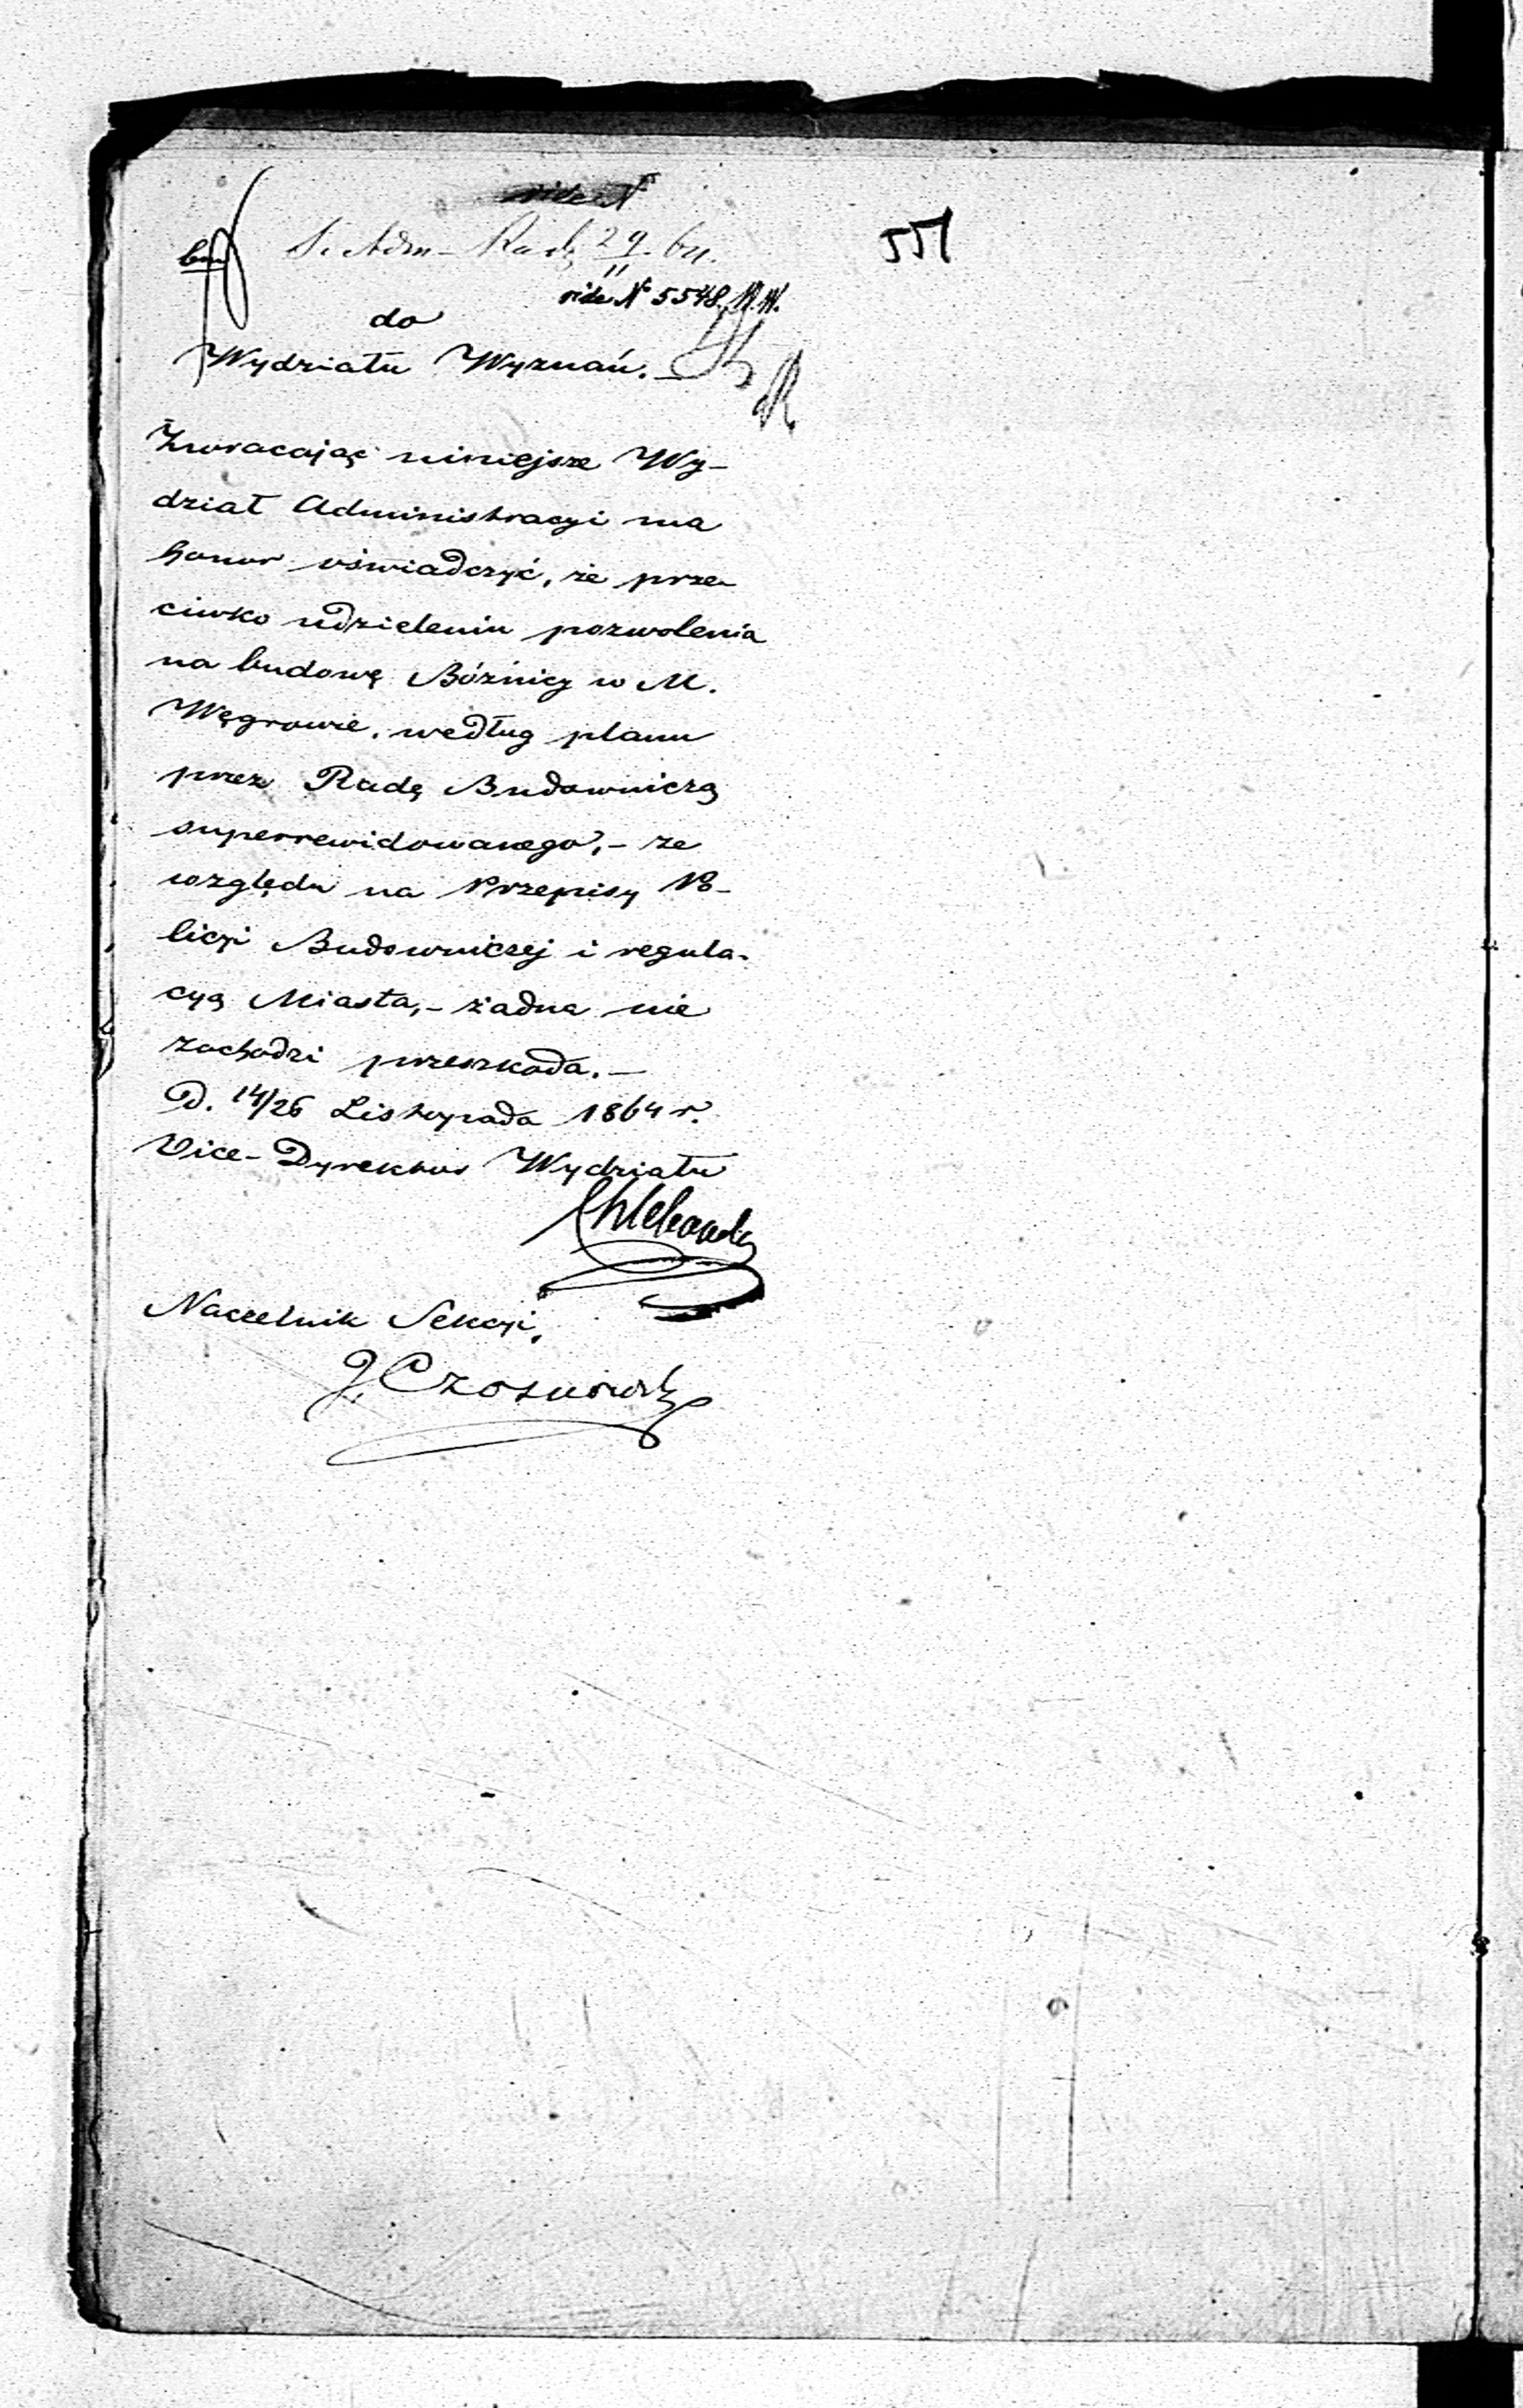 551
vide N
29/11 64.
vide N 5548.
do
Wydziału Wyznań. —
Zwracając niniejsze Wy-
dział Administracyi ma
honor oświadczyć, że prze-
ciwko udzieleniu pozwolenia
na budowę Bóżnicy w M.
Węgrowie, według planu
przez Radę Budowniczą
superrewidowanego, – ze
względu na Przepisy Po-
licyi Budowniczej i regula-
cyą Miasta, – żadna nie
zachodzi przeszkoda. —
D. 14/26 Listopada 1864 r.
Vice-Dyrektor Wydziału
Naczelnik Sekcyi,
J. Czosnowski